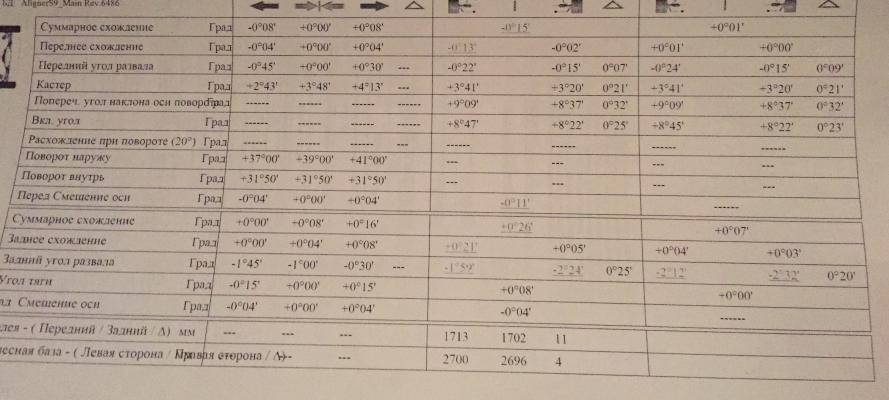 БД: Aligner59_Main Rev.6486
Суммарное схождение Град -0°08' +0°00' +0°08' -0°15' +0°01'
Переднее схождение Град -0°04' +0°00' +0°04' -0°13' -0°02' +0°01' +0°00'
Передний угол развала Град -0°45' +0°00' +0°30' --- -0°22' -0°15' 0°07' -0°24' -0°15' 0°09'
Кастер Град +2°43' +3°48' +4°13' --- +3°41' +3°20' 0°21' +3°41' +3°20' 0°21'
Попереч. угол наклона оси поворота Град ------ ------ ------ ------ +9°09' +8°37' 0°32' +9°09' +8°37' 0°32'
Вкл. угол Град ------ ------ ------ ------ +8°47' +8°22' 0°25' +8°45' +8°22' 0°23'
Расхождение при повороте (20°) Град ------ ------ ------ ------ ------ ------ ------
Поворот наружу Град +37°00' +39°00' +41°00' --- --- --- ---
Поворот внутрь Град +31°50' +31°50' +31°50' --- --- --- ---
Перед Смещение оси Град -0°04' +0°00' +0°04' -0°11' ------
Суммарное схождение Град +0°00' +0°08' +0°16' +0°26' +0°07'
Заднее схождение Град +0°00' +0°04' +0°08' +0°21' +0°05' +0°04' +0°03'
Задний угол развала Град -1°45' -1°00' -0°30' --- -1°59' -2°24' 0°25' -2°12' -2°32' 0°20'
Угол тяги Град -0°15' +0°00' +0°15' +0°08' +0°00'
ад Смещение оси Град -0°04' +0°00' +0°04' -0°04' ------
лея - ( Передний / Задний / Δ) мм --- --- 1713 1702 11
есная база - ( Левая сторона / Правая сторона / Δ) --- --- 2700 2696 4